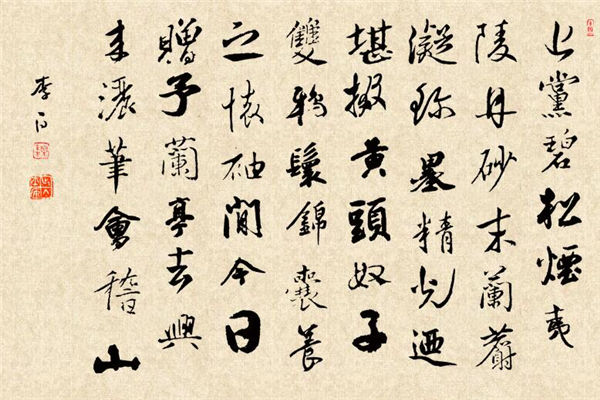 上黨碧松煙夷
陵丹砂末蘭麝
凝珎墨精光迺
堪掇黄頭奴子
雙鴉鬟錦囊養
之懐袖間今日
贈予蘭亭去興
来灑筆會稽山
李白